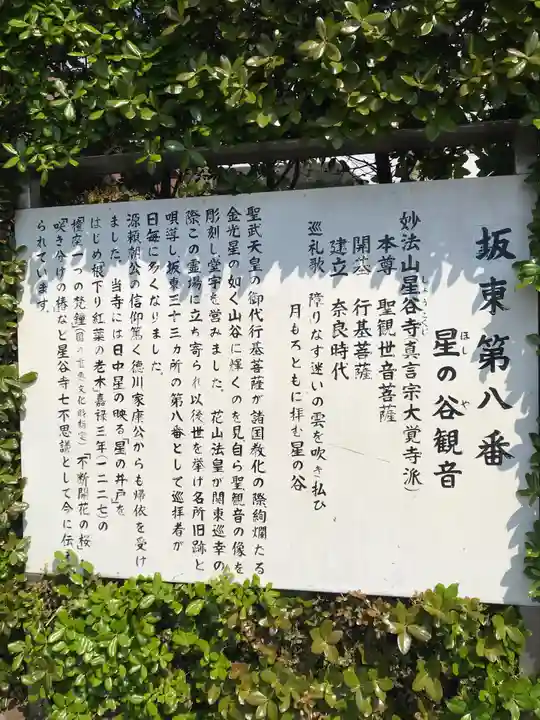 坂東第八番
星の谷観音
ほし や
妙法山星谷寺(真言宗大覚寺派)
しょうこくじ
本尊 聖観世音菩薩
開基 行基菩薩
建立 奈良時代
巡礼歌 障りなす迷いの雲を吹き払ひ
月もろともに拝む星の谷
聖武天皇の御代行基菩薩が諸国教化の際絢爛たる
金光星の如く山谷に輝くのを見自ら聖観音の像を
彫刻し堂宇を営みました。花山法皇が関東巡幸の
際この霊場に立ち寄られ以後世を挙げ名所旧跡と
唄導し坂東三十三ヵ所の第八番として巡拝者が
日毎に多くなりました。
源頼朝公の信仰篤く徳川家康公からも帰依を受け
ました。当寺には日中星の映る「星の井戸」を
はじめ根下り紅葉の老木」嘉禄三年(一二二七)の
撞座一つの梵鐘(国の重要文化財指定)「不断開花の桜」
「咲き分けの椿など星谷寺七不思議として今に伝え
られています。